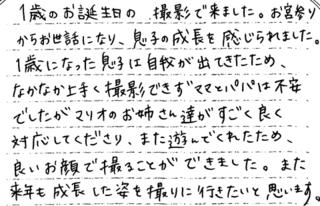 1歳のお誕生日の 撮影で来ました。お宮参り
からお世話になり、息子の成長を感じられました。
1歳になった息子は自我が出てきたため、
なかなか上手く撮影できずママとパパは不安
でしたがマリオのお姉さん達がすごく良く
対応してくださり、また遊んでくれたため、
良いお顔で撮ることができました。また
来年も成長した姿を撮りに行きたいと思います。